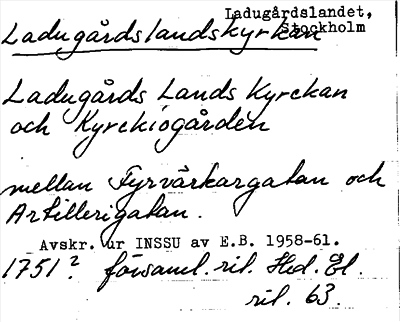 Ladugårdslandet,
Stockholm
Ladugårdslandskyrkan
Ladugårds Lands Kyrckan
och Kyrckiogården
mellan Fyrvärkargatan och
Artillerigatan.
Avskr. ur INSSU av E.B. 1958-61.
1751? församl. rit. Hed. El.
rit. 63.